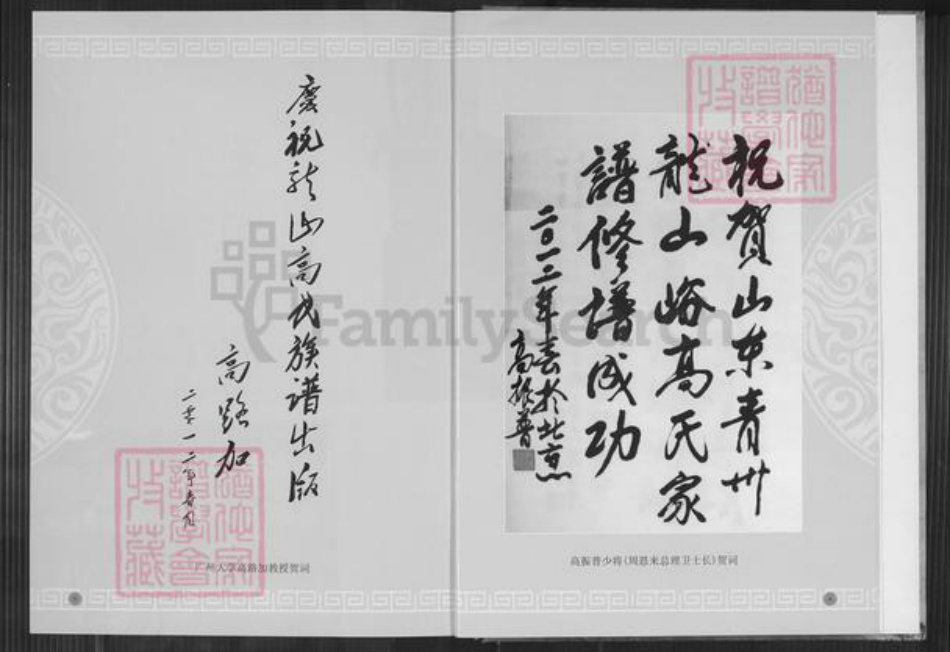 祝賀山东青州
龍山峪高氏家
譜修譜成功
二〇一二年春於北京
高振普
高振普少将(周恩来总理卫士长)贺词
慶祝龙山高氏族谱出版
高路加
二零一二年春月
广州大学高路加教授贺词
FamilySearch